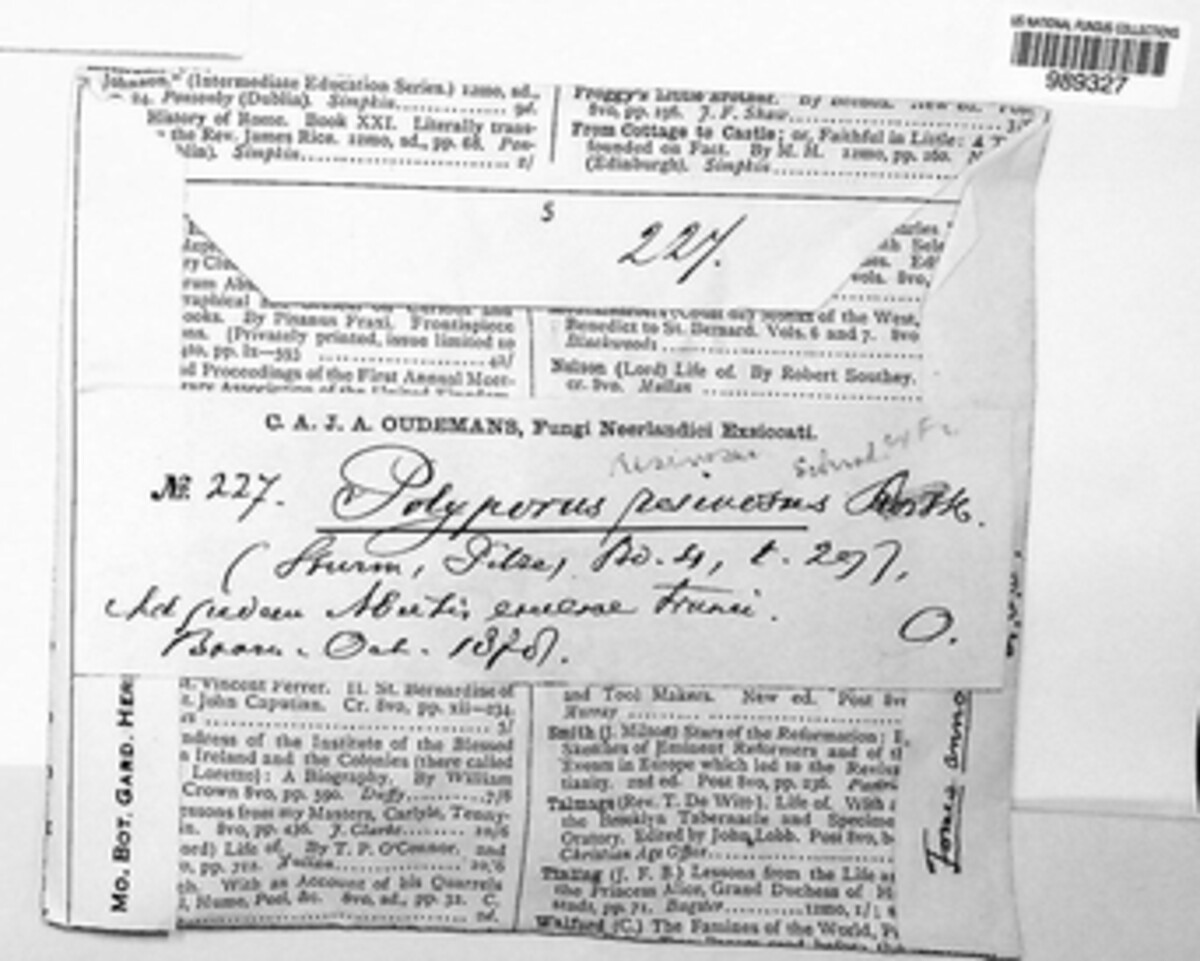 US NATIONAL FUNGUS COLLECTIONS
989327
Johnson," (Intermediate Education Series.) 12mo, sd.,
24. Ponsonby (Dublin). Simpkin 9d.
History of Rome. Book XXI. Literally trans-
the Rev. James Rice. 12mo, sd., pp. 68. Pon-
blin). Simpkin 2/
Froggy's Little Brother. By New ed.
8vo, pp. 196. J. F. Shaw
From Cottage to Castle; or, Faithful in Little: A T
founded on Fact. By M. H. 12mo, pp. 160. N
(Edinburgh). Simpkin
S
227.
ooks. By Pisanus Fraxi. Frontispiece
ns. [Privately printed, issue limited to
4to, pp. lx—593 42/
d Proceedings of the First Annual Meet-
rary Association of the United Kingdom
of the West,
Benedict to St. Bernard. Vols. 6 and 7. 8vo
Blackwoods
Nelson (Lord) Life of. By Robert Southey.
cr. 8vo.
C. A. J. A. OUDEMANS, Fungi Neerlandici Exsiccati.
resinosus Schrad ex Fr
№ 227. Polyporus resinosus Rostk.
(Sturm, Pilze, Bd. 4, t. 29),
Ad pedem trunci.
Baarn. Oct. 1878. O.
MO. BOT. GARD. HER
t. Vincent Ferrer. II. St. Bernardine of
. John Capistran. Cr. 8vo, pp. xii—234.
5/
ndress of the Institute of the Blessed
Ireland and the Colonies (there called
Loretto): A Biography. By William
Crown 8vo, pp. 590. Duffy 7/6
essons from my Masters, Carlyle, Tenny-
n. 8vo, pp. 436. J. Clarke 10/6
ord) Life of. By T. P. O'Connor. 2nd
, pp. 712. 10/6
ch. With an Account of his Quarrels
, Hume, Pool, &c. 8vo, sd., pp. 32. C.
9d.
and Tool Makers. New ed. Post 8vo
Murray
Smith (J. Milton) Stars of the Reformation:
Sketches of Eminent Reformers and of th
Events in Europe which led to the Reviva
tianity. 2nd ed. Post 8vo, pp. 236.
Talmage (Rev. T. De Witt). Life of. With a
the Brooklyn Tabernacle and Specime
Oratory. Edited by John Lobb. Post 8vo, b
Christian Age Office
Tinling (J. F. B.) Lessons from the Life a
the Princess Alice, Grand Duchess of H
sands, pp. 71. Bagster 12mo, 1/;
Walford (C.) The Famines of the World, P
Fomes anno